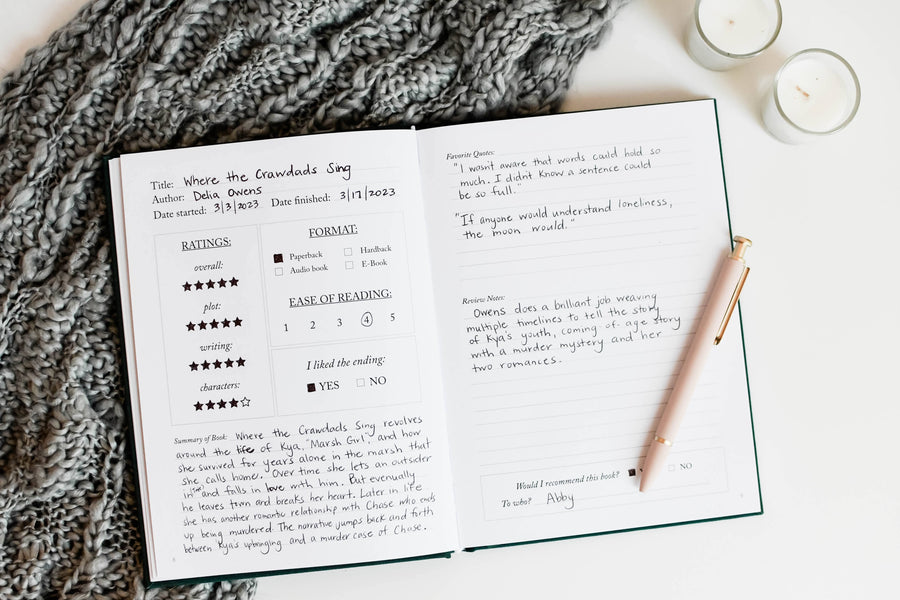 Title: Where the Crawdads Sing
Author: Delia Owens
Date started: 3/3/2023 Date finished: 3/17/2023
RATINGS:
overall:
plot:
writing:
characters:
FORMAT:
Paperback Hardback
Audio book E-Book
EASE OF READING:
1 2 3 4 5
I liked the ending:
YES NO
Summary of Book: Where the Crawdads Sing revolves
around the life of Kya, "Marsh Girl", and how
she survived for years alone in the marsh that
she calls home. Over time she lets an outsider
in and falls in love with him. But evenually
he leaves town and breaks her heart. Later in life
she has another romantic relationship with Chase who ends
up being murdered. The narrative jumps back and forth
between Kya's upbringing and a murder case of Chase.
Favorite Quotes:
"I wasn't aware that words could hold so
much. I didn't know a sentence could
be so full."
"If anyone would understand loneliness,
the moon would."
Review Notes:
Owens does a brilliant job weaving
multiple timelines to tell the story
of Kya's youth, coming-of-age story
with a murder mystery and her
two romances.
Would I recommend this book? NO
To who? Abby